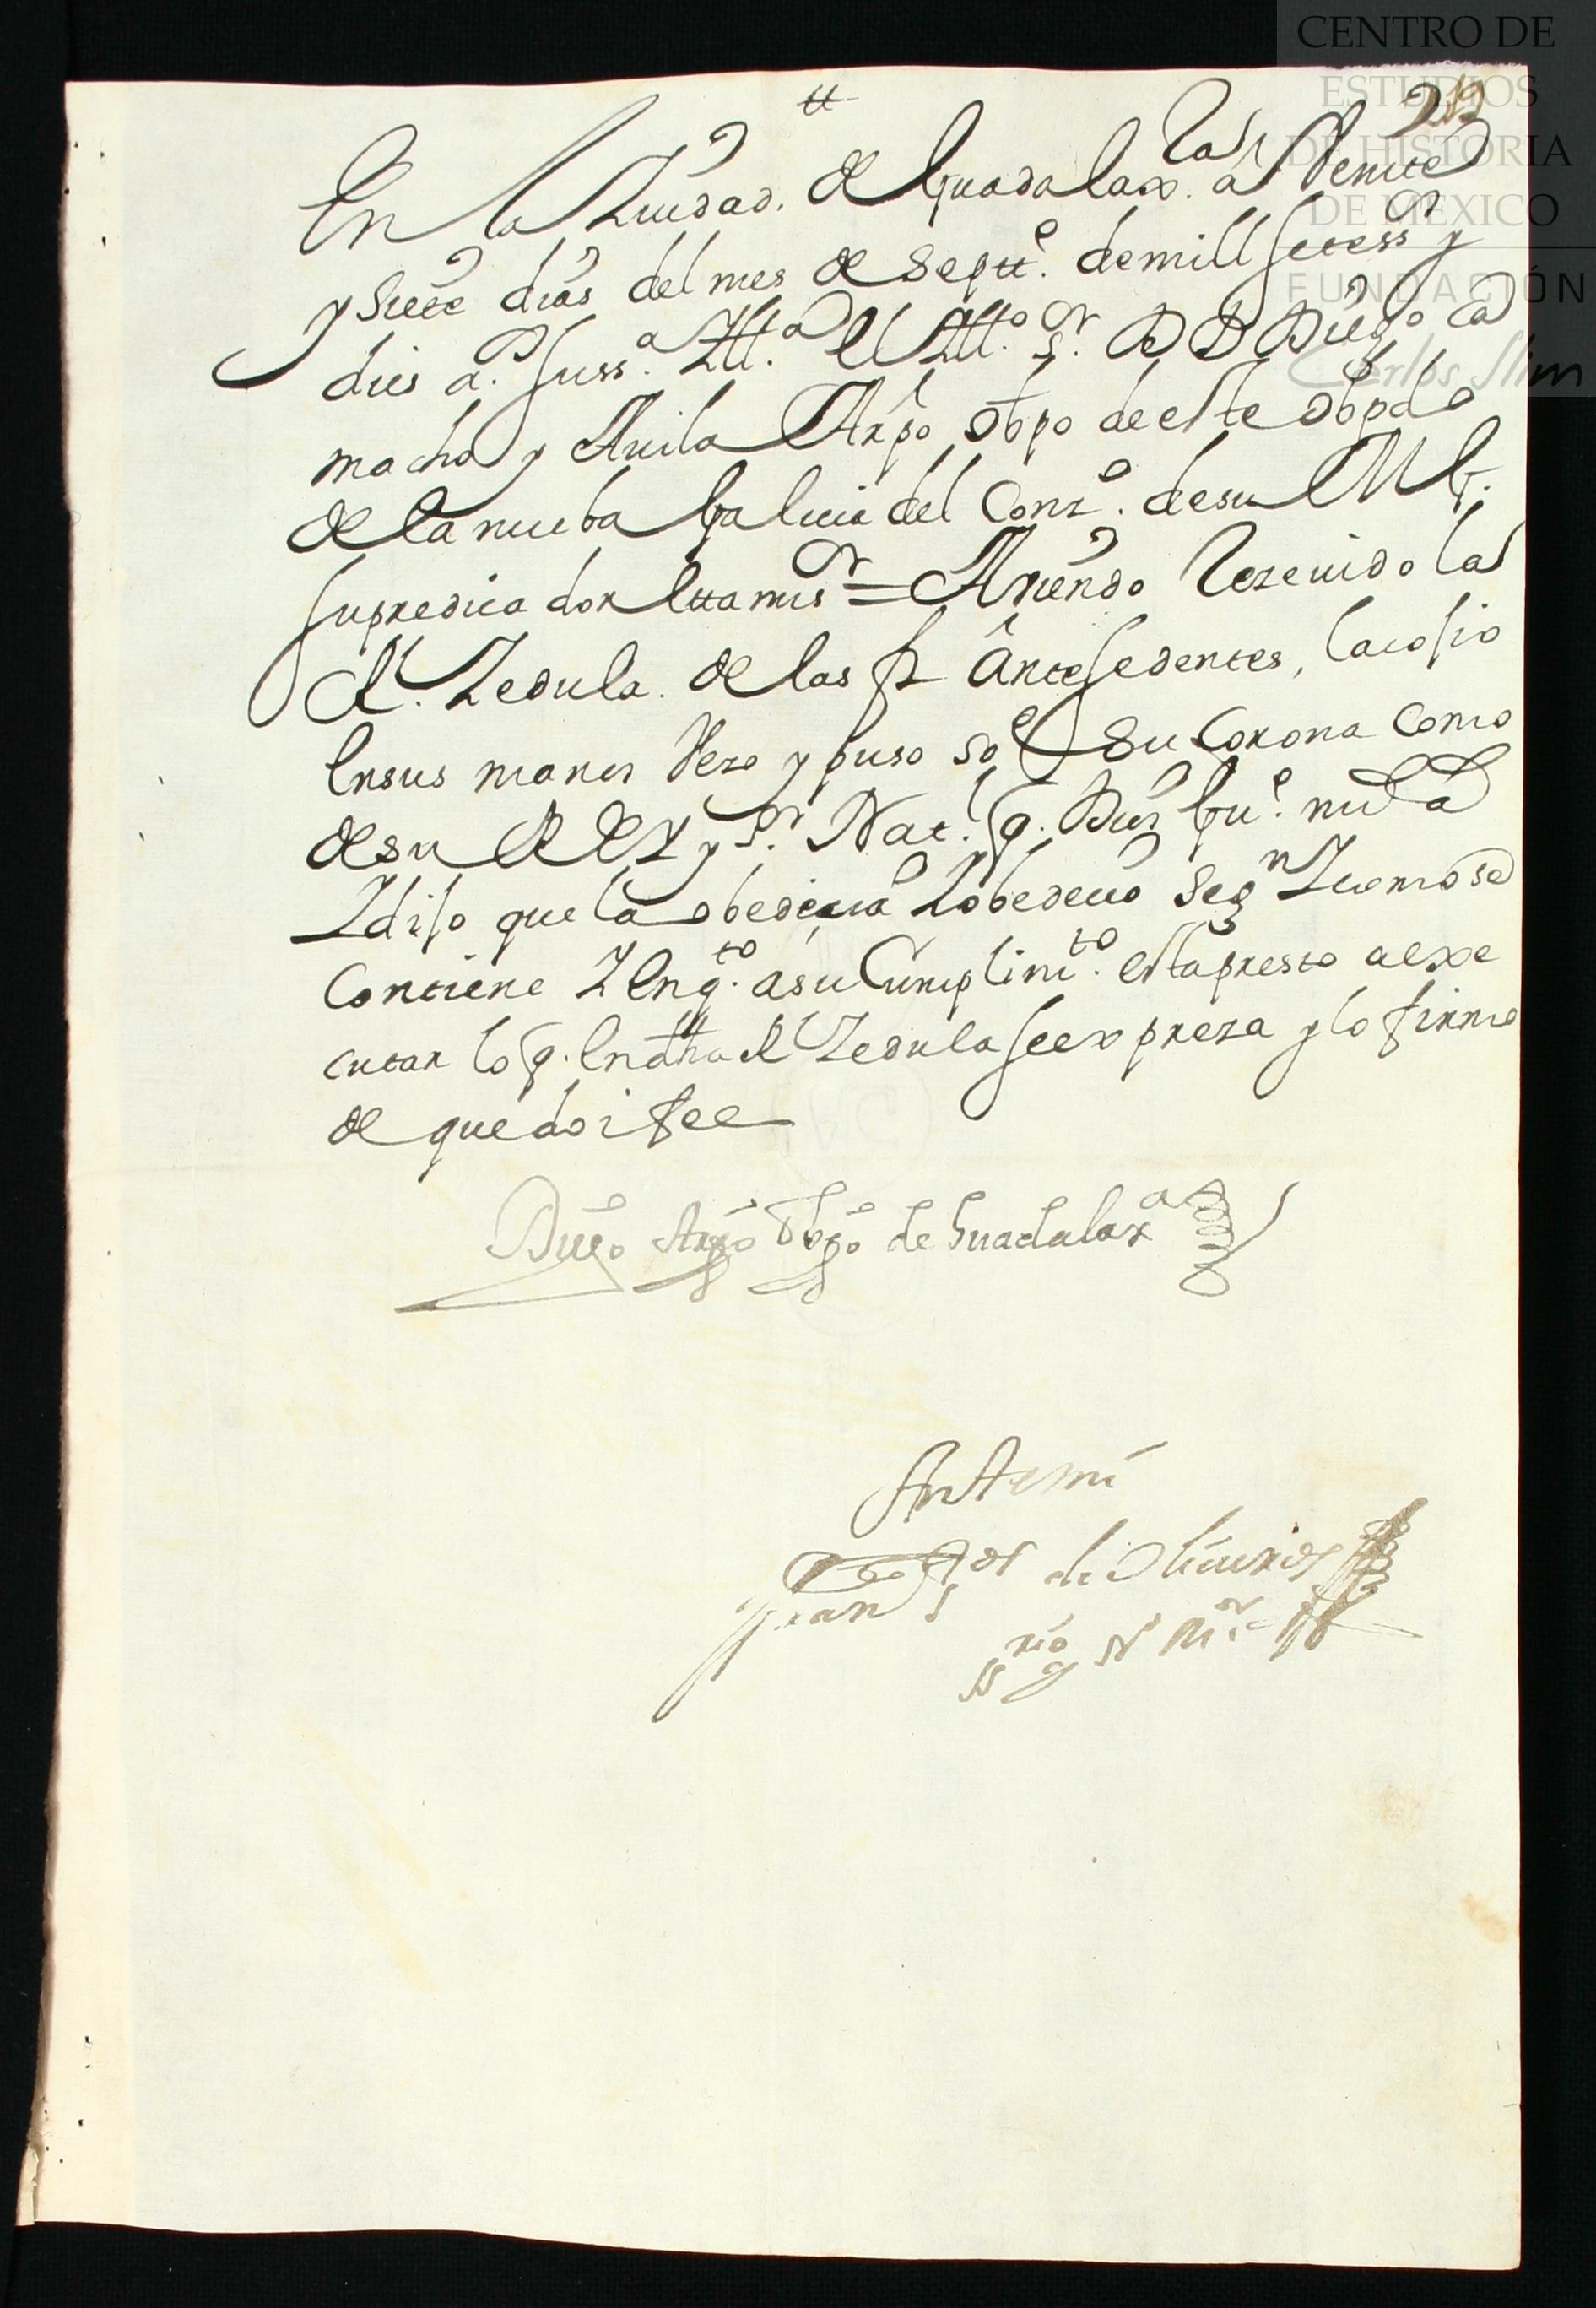 CENTRO DE
ESTUDIOS
DE HISTORIA
DE MEXICO
FUNDACIÓN
Carlos Slim
tt
En la Ziudad. de Guadalax.ra a Veinte
y siete dias del mes de Septt.e de mill setess.s y
dies a.s su ss.a Ill.a El Ill.mo S.r D D Diego Ca
macho y Auila Arpo obpo de este obpdo
de la nueba Galicia del Conz.o de su Mg.
su predicador Ettamis.r = Auiendo Rezeuido la
Rl. Zedula. de las fs antesedentes, la cosio
En sus manos Vezo y puso so.e su Corona como
de su REY y S.r Nat.l q. Dios Gu.e mu a
Y dijo que la obedecia Y obedecio seg.n Y como se
Contiene Y En q.to a su Cumplim.to esta presto a exe
cutar lo q. En dha Rl Zedula se expreza y lo firmo
de que doi fee
Diego Arpo Obpo de Guadalax.a
Ante mi
Juan de Oliuares
ss.rio